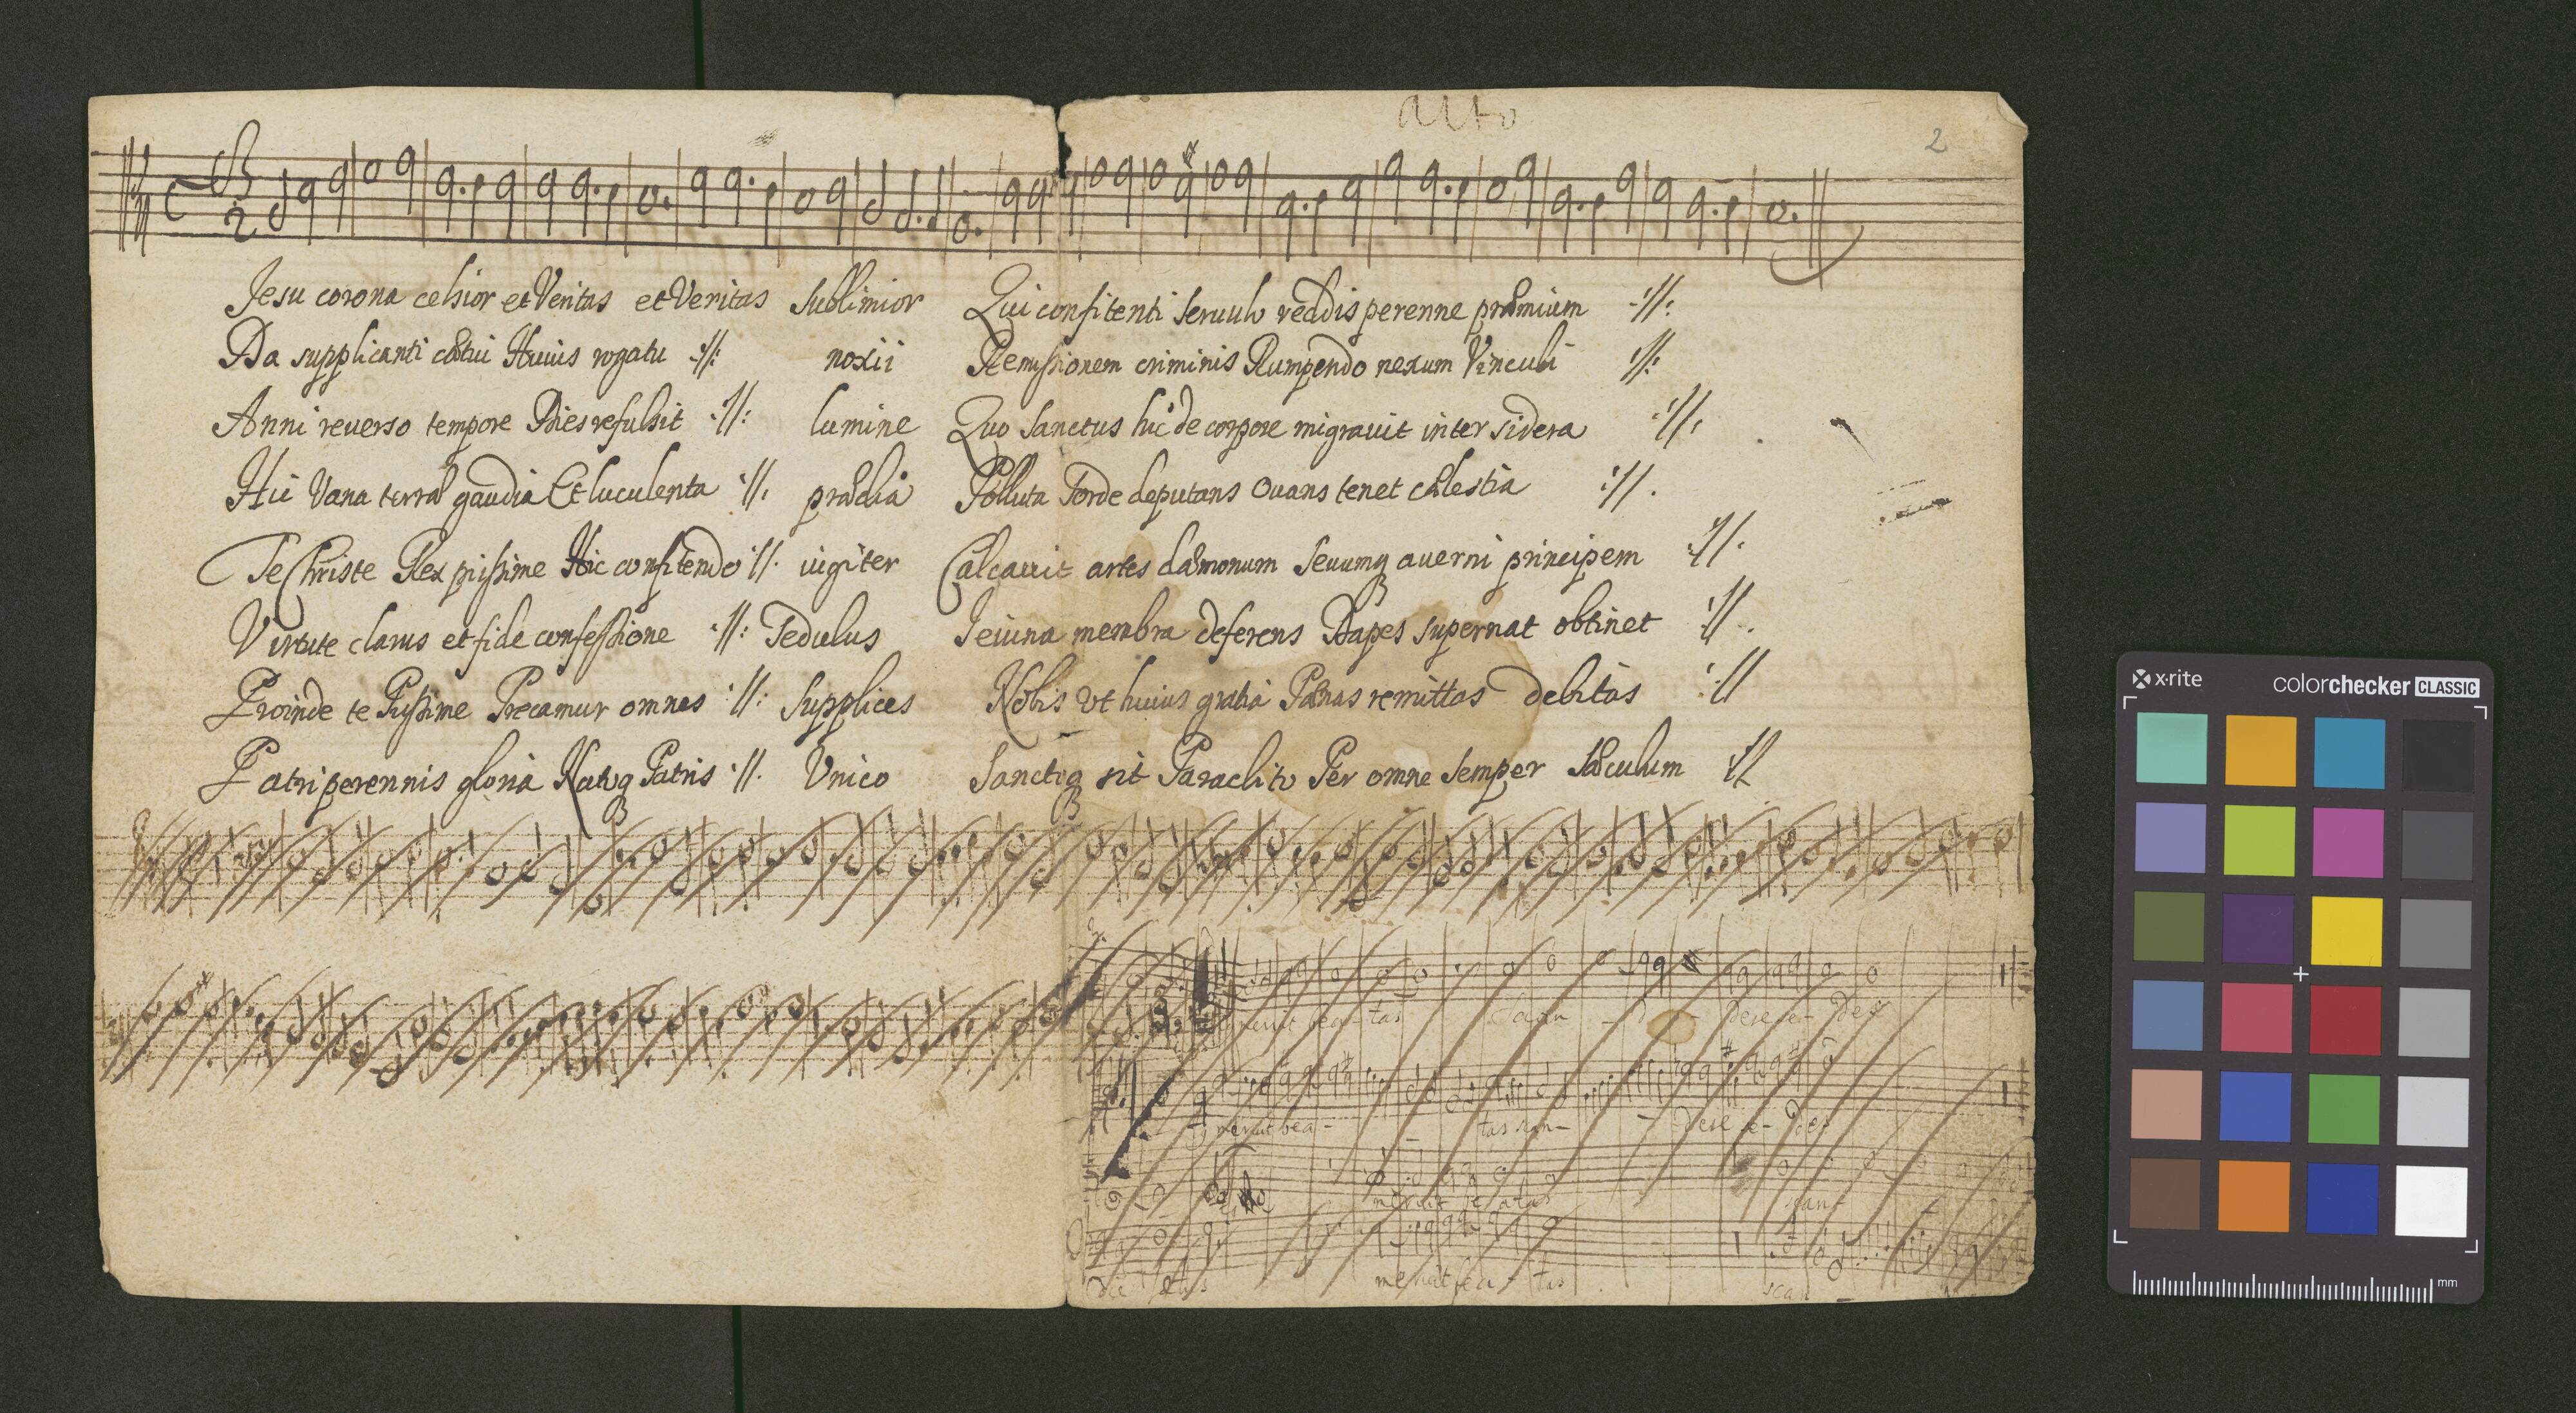 alto
2
Jesu corona celsior et Veritas et Veritas sublimior Qui confitenti seruulo reddis perenne præmium :||:
Da supplicanti cœtui Huius rogatu :||: noxii Remissionem criminis Rumpendo nexum Vinculi :||:
Anni reuerso tempore Dies refulsit :||: lumine Quo sanctus hic de corpore migrauit inter sidera :||:
Hic Vana terræ gaudia Et luculenta :||: prædia Polluta sorde deputans ouans tenet cœlestia :||.
Te Christe Rex piissime Hic confitendo :||. iugiter Calcauit artes dæmonum seuumq auerni principem :||.
Virtute clarus et fide confessione :||: sedulus Ieiuna membra deferens Dapes supernat obtinet :||.
Proinde te Piissime Precamur omnes :||: supplices Nobis Vt huius gratia Pœnas remittas debitas :||
Patri perennis gloria Natoq Patris :||. Vnico Sanctoq sit Paraclito Per omne semper sæculum :||
meruit bea - tas scan - dere se - des
meruit bea - tas scan - dere se - des
meruit beatas scan
meruit bea - tas scan
x·rite colorchecker CLASSIC
mm